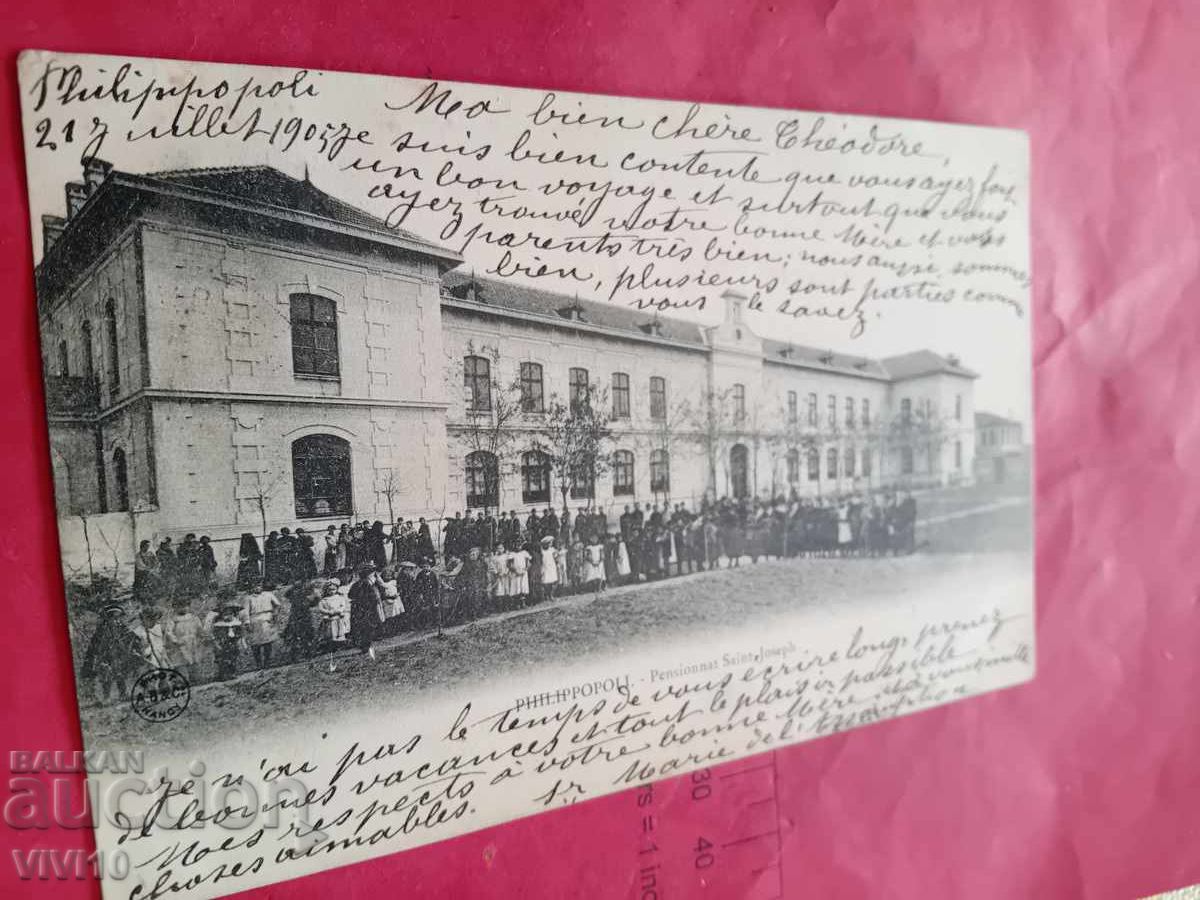 Philippopoli
21 7 Juillet 1905
Ma bien chère Théodore,
Je suis bien contente que vous ayez fait
un bon voyage et surtout que vous
ayez trouvé votre bonne Mère et vos
parents très bien; nous aussi, sommes
bien, plusieurs sont parties comme
vous le savez.
PHILIPPOPOLI. - Pensionnat Saint Joseph
Je n'ai pas le temps de vous écrire long, prenez
de bonnes vacances et tout le plaisir possible
Mes respects à votre bonne Mère
choses aimables. Sr Marie de l'Assomption
BALKAN
auction
VIVI10
= 1 inc
30 40